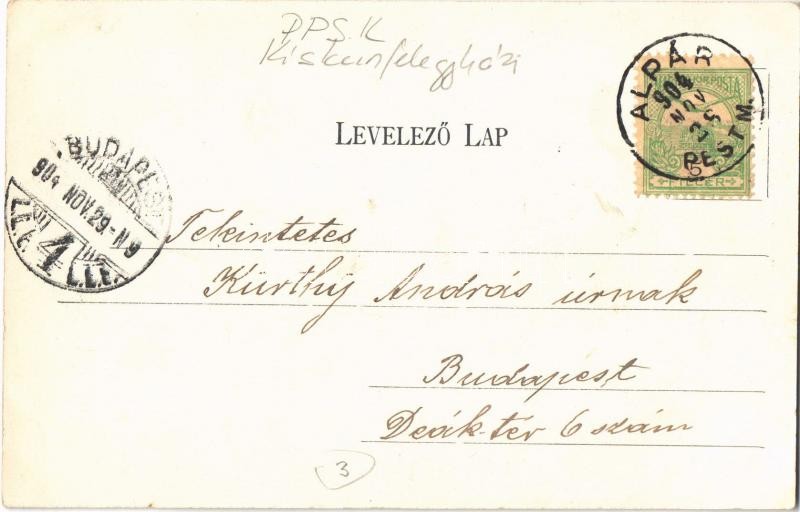 PPS.K
Kiskunfélegyházi
ALPÁR
904
NOV
25
PEST M.
5
FILLÉR
LEVELEZŐ LAP
BUDAPEST
904 NOV.29-N9
4
L.E.E. L.L.E.
Tekintetes
Kürthy András úrnak
Budapest
Deák-tér 6 szám
3